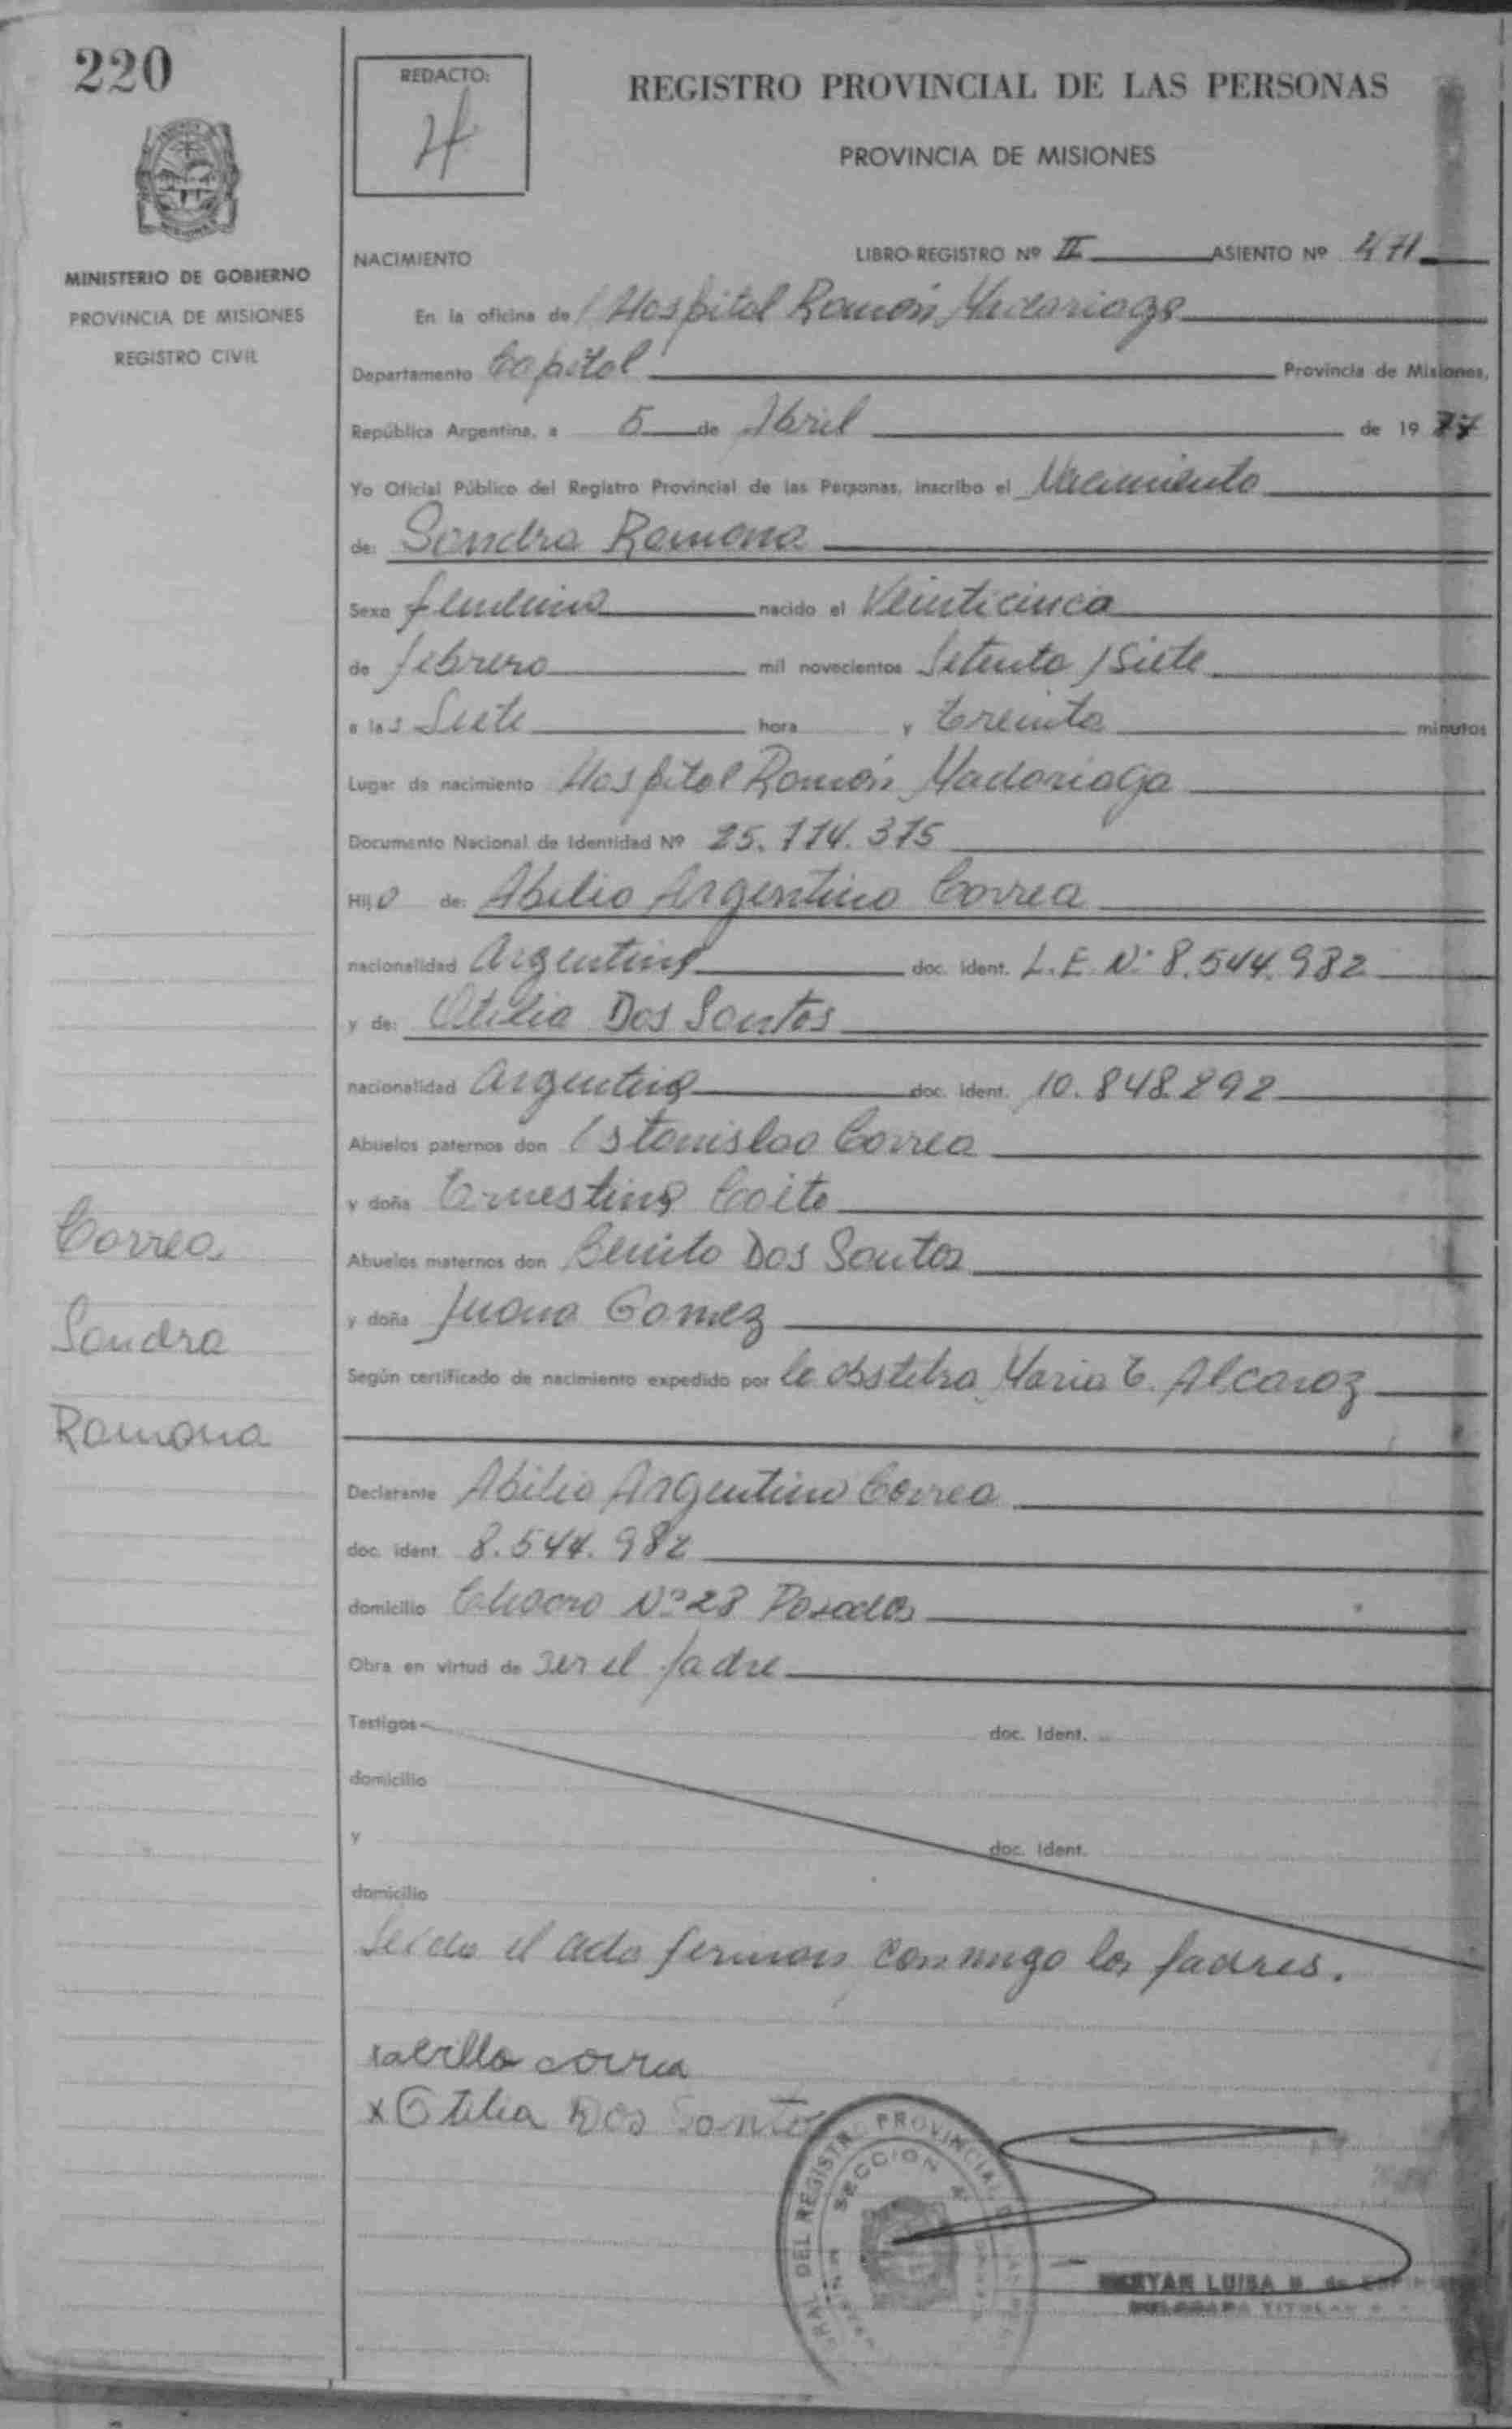 220
REDACTO:
REGISTRO PROVINCIAL DE LAS PERSONAS
PROVINCIA DE MISIONES
MINISTERIO DE GOBIERNO
PROVINCIA DE MISIONES
REGISTRO CIVIL
NACIMIENTO LIBRO REGISTRO Nº II ASIENTO Nº 471
En la oficina del Hospital Ramón Madariaga
Departamento Capital Provincia de Misiones,
República Argentina, a 5 de Abril de 1977
Yo Oficial Público del Registro Provincial de las Personas, inscribo el Nacimiento
de: Sandra Ramona
Sexo femenino nacido el Veinticinco
de febrero mil novecientos Setenta y Siete
a las Siete hora y treinta minutos
Lugar de nacimiento Hospital Ramón Madariaga
Documento Nacional de Identidad Nº 25.114.375
Hijo de: Abilio Argentino Correa
nacionalidad Argentina doc. ident. L.E. Nº 8.544.982
y de: Otilia Dos Santos
nacionalidad Argentina doc. ident. 10.848.292
Abuelos paternos don Estanislao Correa
y doña Ernestina Coito
Abuelos maternos don Benito Dos Santos
y doña Juana Gomez
Según certificado de nacimiento expedido por la obstetra Maria E. Alcaraz
Correa
Sandra
Ramona
Declarante Abilio Argentino Correa
doc. ident. 8.544.982
domicilio Chacra Nº 28 Posadas
Obra en virtud de ser el padre
Testigos doc. Ident.
domicilio
y doc. Ident.
domicilio
Leída el acta firman conmigo los padres.
correa
x Otilia Dos Santos
GRAL. DEL REGISTRO PROVINCIAL DE
SECCION
LUISA
TITULAR